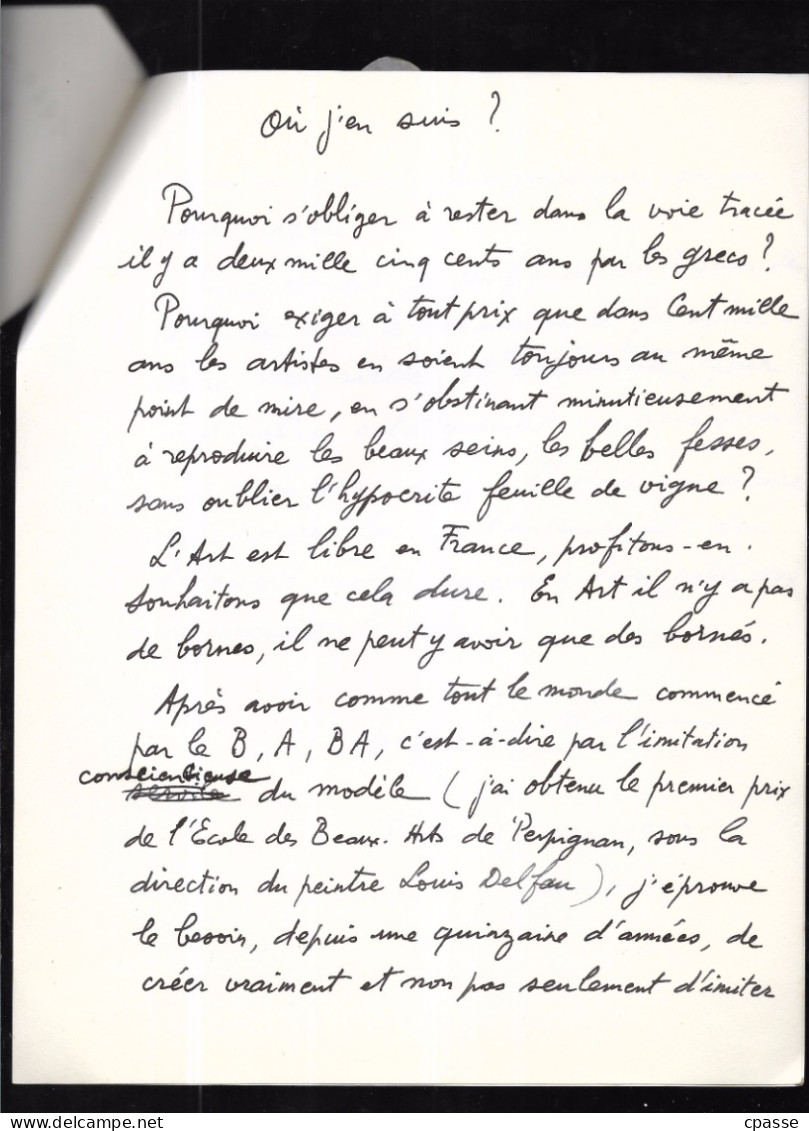 Où j'en suis ?
Pourquoi s'obliger à rester dans la voie tracée
il y a deux mille cinq cents ans par les grecs ?
Pourquoi exiger à tout prix que dans Cent mille
ans les artistes en soient toujours au même
point de mire, en s'obstinant minutieusement
à reproduire les beaux seins, les belles fesses,
sans oublier l'hypocrite feuille de vigne ?
L'Art est libre en France, profitons-en.
Souhaitons que cela dure. En Art il n'y a pas
de bornes, il ne peut y avoir que des bornés.
Après avoir comme tout le monde commencé
par le B, A, BA, c'est-à-dire par l'imitation
consciencieuse
servile du modèle (j'ai obtenu le premier prix
de l'Ecole des Beaux-Arts de Perpignan, sous la
direction du peintre Louis Delfau), j'éprouve
le besoin, depuis une quinzaine d'années, de
créer vraiment et non pas seulement d'imiter
www.delcampe.net
cpasse